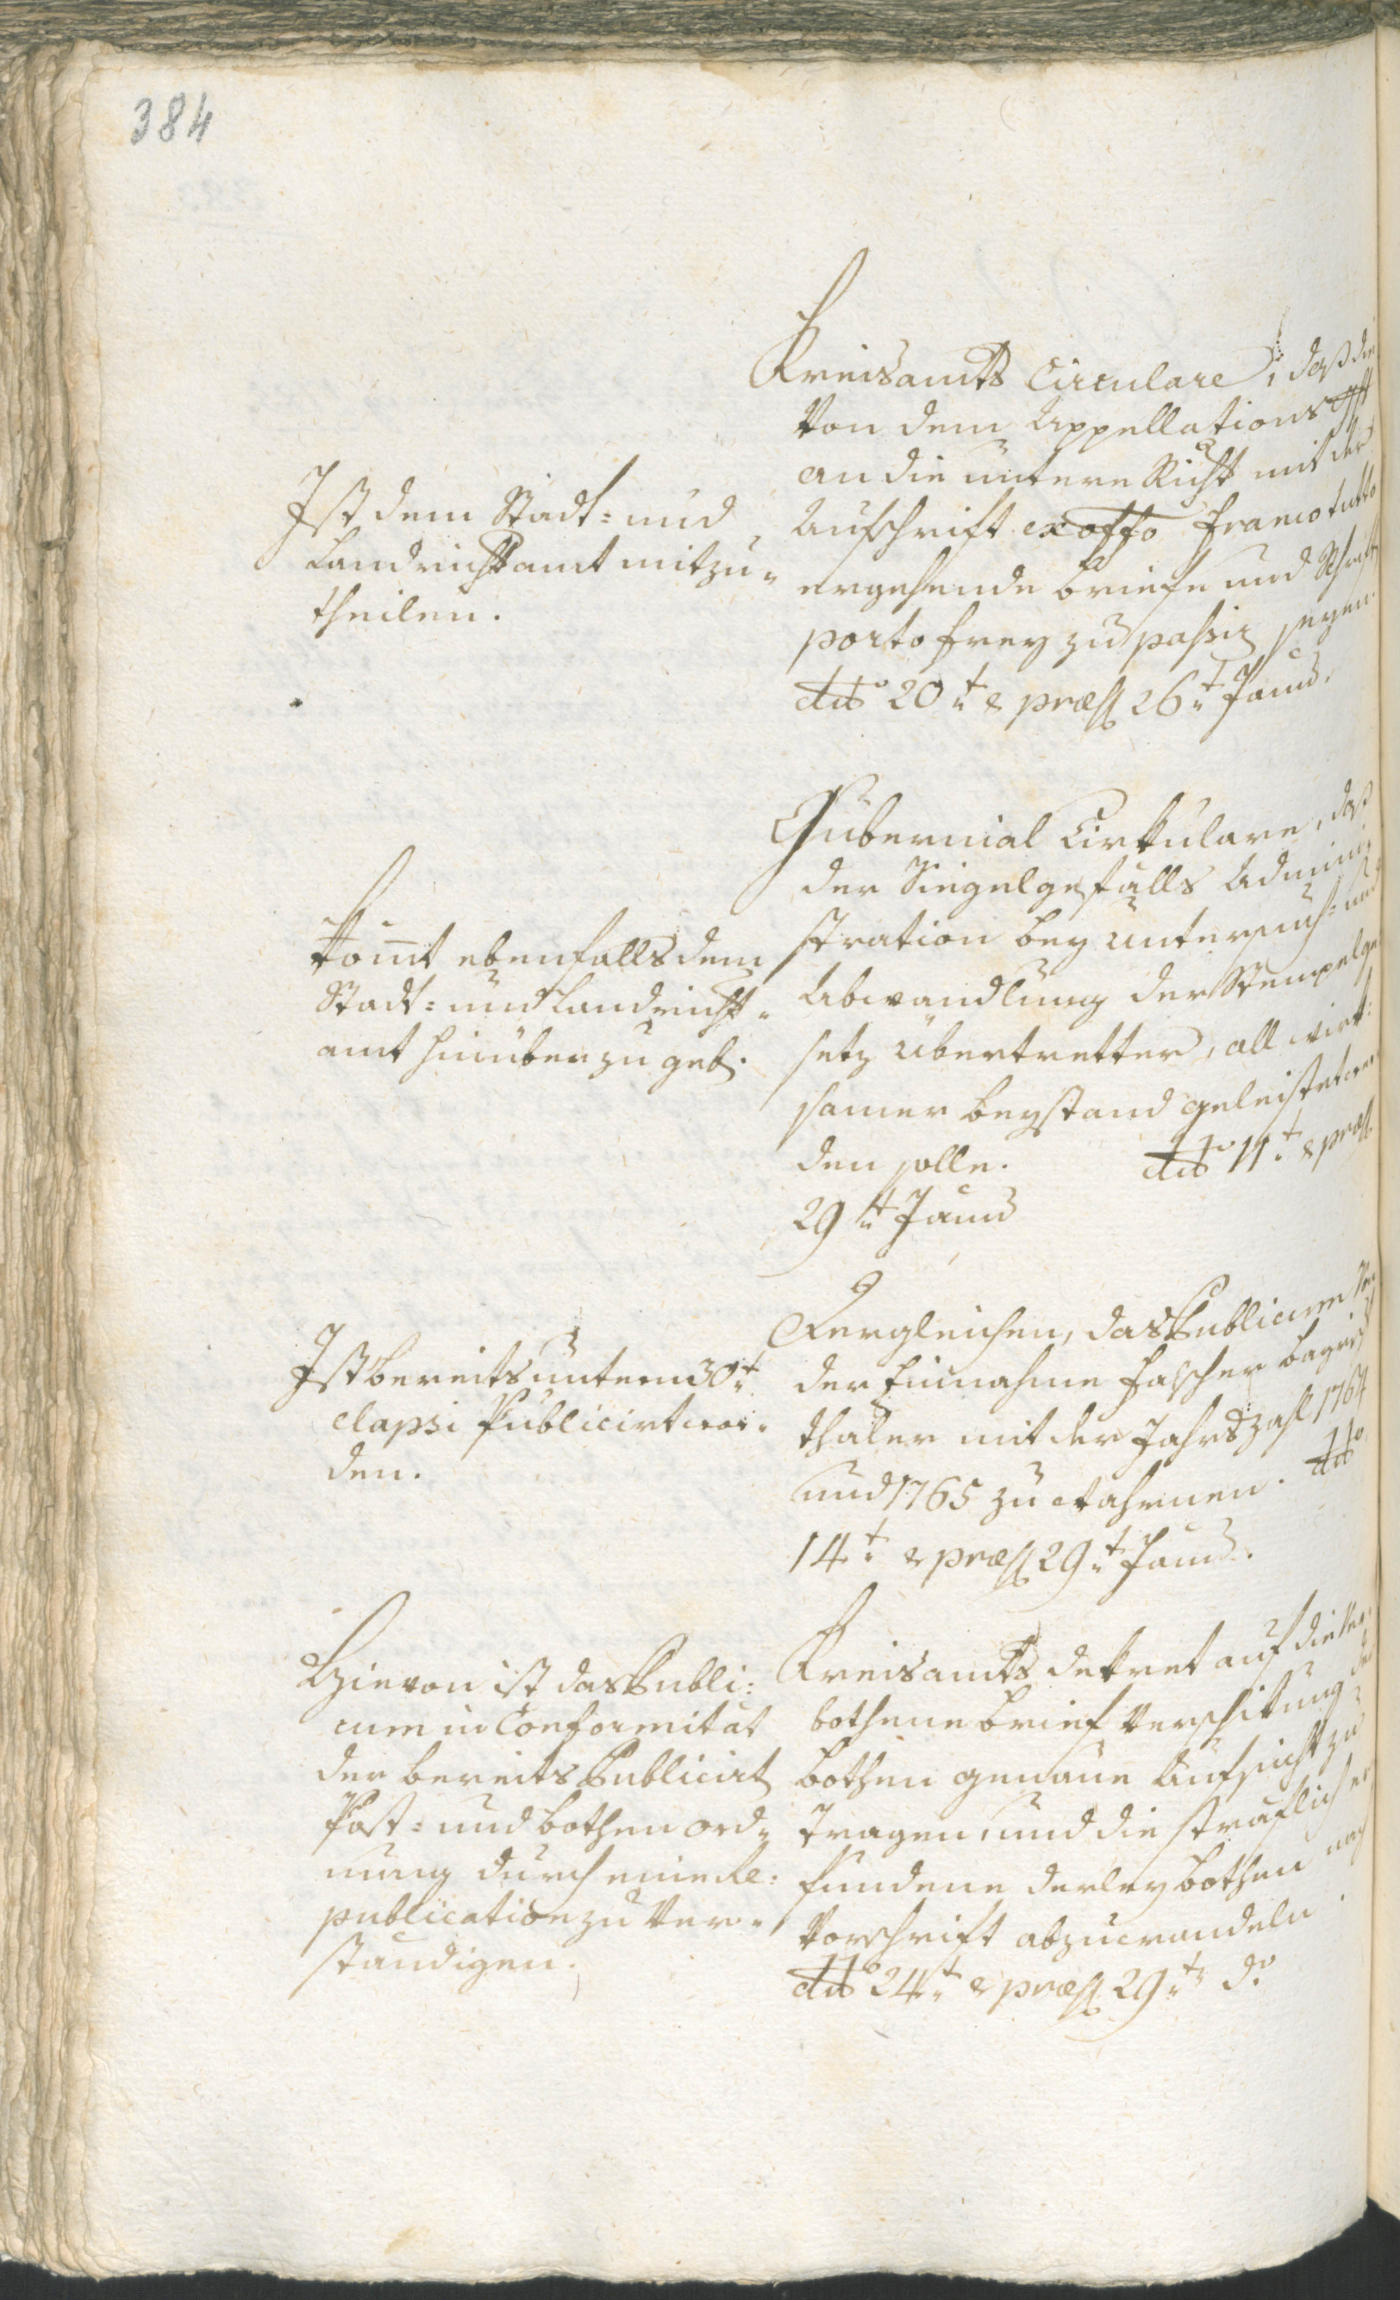 384
Kreisamts Circulare, daß die
Von dem Appellations
an die untere Richt mit der
Aufschrift ex offo franco tutto
ergehende briefe und Schrift
porto frey zu passir seyen.
dto 20t & præs 26t Januar.
Ist dem Stadt= und
Landrichtamt mitzu=
theilen.
Gubernial Cirkulare, daß
der Siegelgefälls Admini=
stration bey untersuch= und
Abwandlung der Stempelge
setz übertretter, all wirk=
samer beystand geleistet wer
den solle. dto 11t & præs
29t Januar
Komt ebenfalls dem
Stadt= und Landricht=
amt hinüber zu geb.
Dergleichen, das Publicum Vor
der Einnahme falscher bayrisch
thaler mit der Jahrszahl 1764
und 1765 zu wahrnen. dto
14t & præs 29t Januar.
Ist bereits unterm 30t
elapsi Publicirt wor=
den.
Kreisamts dekret auf die Ver
bothene brief Verschikung der
bothen genaue Aufsicht zu
tragen, und die sträflich er
fundene derley bothen nach
Vorschrift abzuwandeln.
dto 24t & præs 29t do
Hievon ist das Publi=
cum in Conformität
der bereits Publicirt
Post= und bothen ord=
nung durch eine Re=
publication zu Ver=
ständigen.